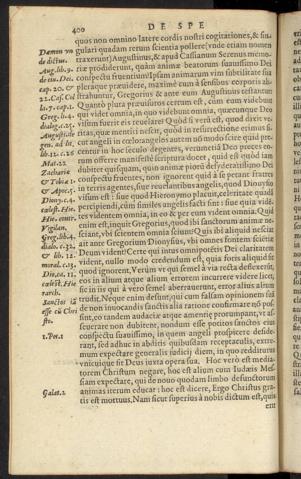 400
DE SPE
quos non omnino latere cordis nostri cogitationes, & sin
gulari quadam rerum scientia pollere (vnde etiam nomen
traxerunt) Augustinus, & apud Cassianum Serenus memo-
riæ prodiderunt, quàm animæ beatorum suauissimo Dei
conspectu fruentium? Ipsam animarum vim subtilitate sua
pleraque præuidere, maximè cum à sensibus corporis ab-
strahuntur, Gregorius & ante eum Augustinus testantur
Quantò plura præuisuros certum est, cùm eum videbunt
qui videt omnia, in quo videbunt omnia, quæcunque Deo
visum fuerit eis reuelare? Quòd si verũ est, quod dixit ve-
ritas, quæ mentiri nescit, quòd in resurrectione erimus si-
cut angeli in cœlo: angelos autem nil modo scire quid pec-
centur in hoc seculo degentes, verùm etiã Deo preces eo-
rum offerre manifestè scriptura docet, quid est quòd iam
dubitet quisquam, quin animæ piorũ desideratissimo Dei
conspectu fruentes, non ignorent quid à se petant fratres
in terris agentes, suæ reuelantibus angelis, quod Dionysio
visum est: siue quod Hieronymo placuit, celeritate quadã
percipiendi, cùm similes angelis facti sint: siue quia vidẽ-
tes videntem omnia, in eo & per eum vident omnia. Quid
enim est, inquit Gregorius, quod ibi sanctorum animæ ne-
sciant, vbi scientem omnia sciunt? Quis ibi aliquid nesciat
ait ante Gregorium Dionysius, vbi omnes fontem scientiæ
Deum vident? Certe qui intus omnipotẽtis Dei claritatem
vident, nullo modo credendum est, quia foris aliquid sit
quod ignorent. Verùm ve qui semel à via recta deflexerũt,
eos in alium atque alium errorem incurrere videre licet,
sic in iis qui à vero semel aberrauerunt, error alius alium
trudit. Neque enim desunt, qui cum falsam opinionem suã
de non inuocandis sanctis alia ratione confirmare nõ pos-
sint, eo tandem audaciæ atque amentiæ prorumpunt, vt as-
seuerare non dubitent, nondum esse potitos sanctos eius
conspectu suauissimo, in quem angeli prospicere deside-
rant, sed adhuc in abditis quibusdam receptaculis, extre-
mum expectare generalis judicij diem, in quo redditurus
vnicuique sit Deus iuxta opera sua. Hoc verò est media-
torem Christum negare, hoc est alium cum Iudæis Mes-
siam expectare, qui de nouo quodam limbo defunctorum
animas iterum educat: hoc est dicere, Ergo Christus gra-
tis est mortuus. Nam sicut superiùs à nobis dictum est, quis
em
Dæmon vn
de dictus.
Aug. lib. 9.
de ciu. Dei.
cap. 20. &
22. Cas. Col
l. 7. cap. 1.
Greg. li. 4.
dialog. c. 25.
August. de
gen. ad lit.
lib. 12. c. 26
Mat. 22
Zacharia
& Tobiæ 1.
& Apoc. 5.
Diony. c. 4.
cælest. Hie.
Hie. contr.
Vigilan.
Greg. lib. 4.
dialo. c. 32.
& lib. 12.
moral. c. 13.
Dio. ca. 11.
cælest. Hie
rarch.
Sanctos iã
esse cũ Chri
sto.
1. Pet. 1
Galat. 2